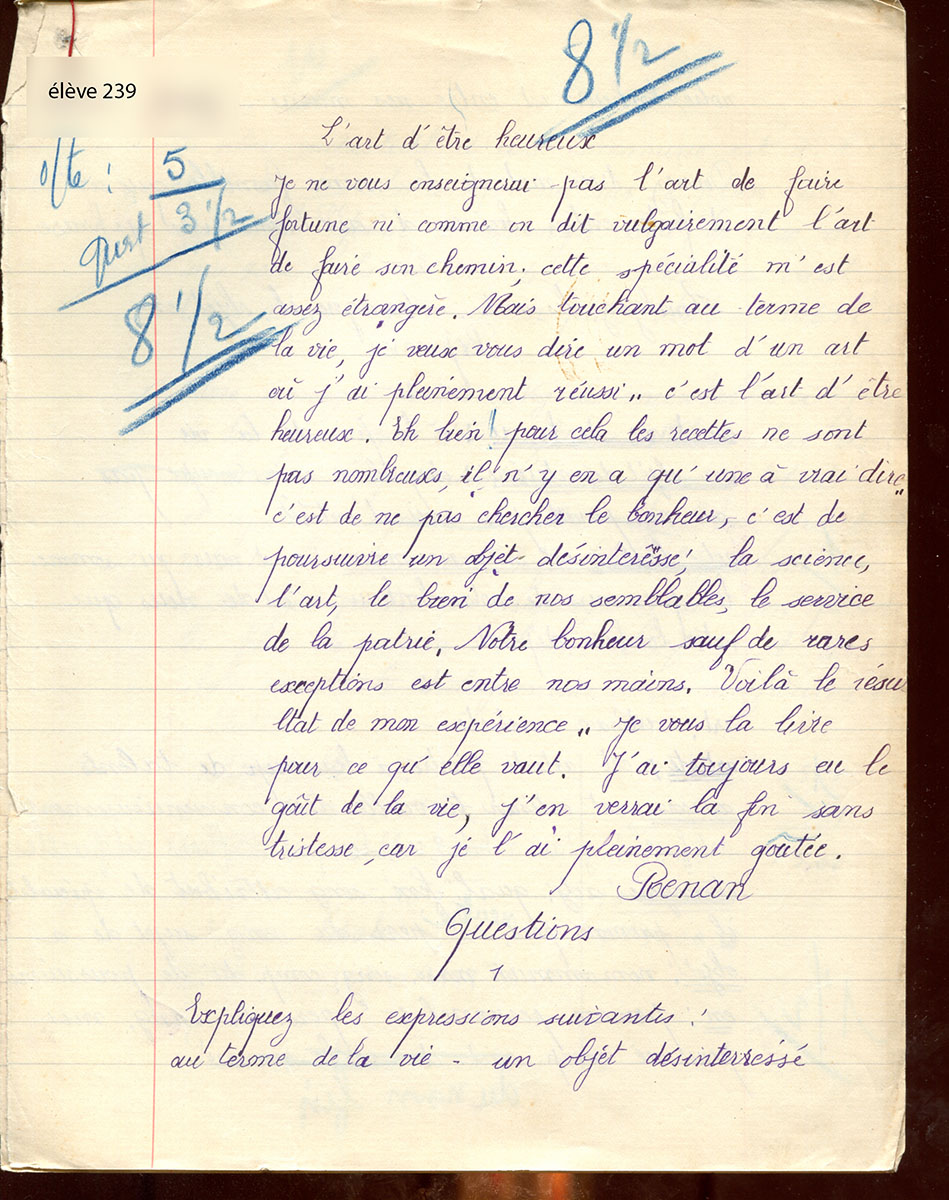 8 1/2
élève 239
L'art d'être heureux
o/te : 5
Je ne vous enseignerai pas l'art de faire
Quest 3 1/2
fortune ni comme on dit vulgairement l'art
de faire son chemin, cette spécialité m'est
8 1/2
assez étrangère. Mais touchant au terme de
la vie, je veux vous dire un mot d'un art
où j'ai pleinement réussi ,, c'est l'art d'être
heureux. Eh bien! pour cela les recettes ne sont
pas nombreuxs, il n'y en a qu'une à vrai dire ,,
c'est de ne pas chercher le bonheur, c'est de
poursuivre un objet désinteressé, la science,
l'art, le bien de nos semblables, le service
de la patrie. Notre bonheur sauf de rares
exceptions est entre nos mains. Voilà le résu
ltat de mon expérience ,, Je vous la livre
pour ce qu'elle vaut. J'ai toujours eu le
goût de la vie, j'en verrai la fin sans
tristesse, car je l'ai pleinement goutée.
Renan
Questions
1
Expliquez les expressions suivantes :
au terme de la vie - un objet désinterressé